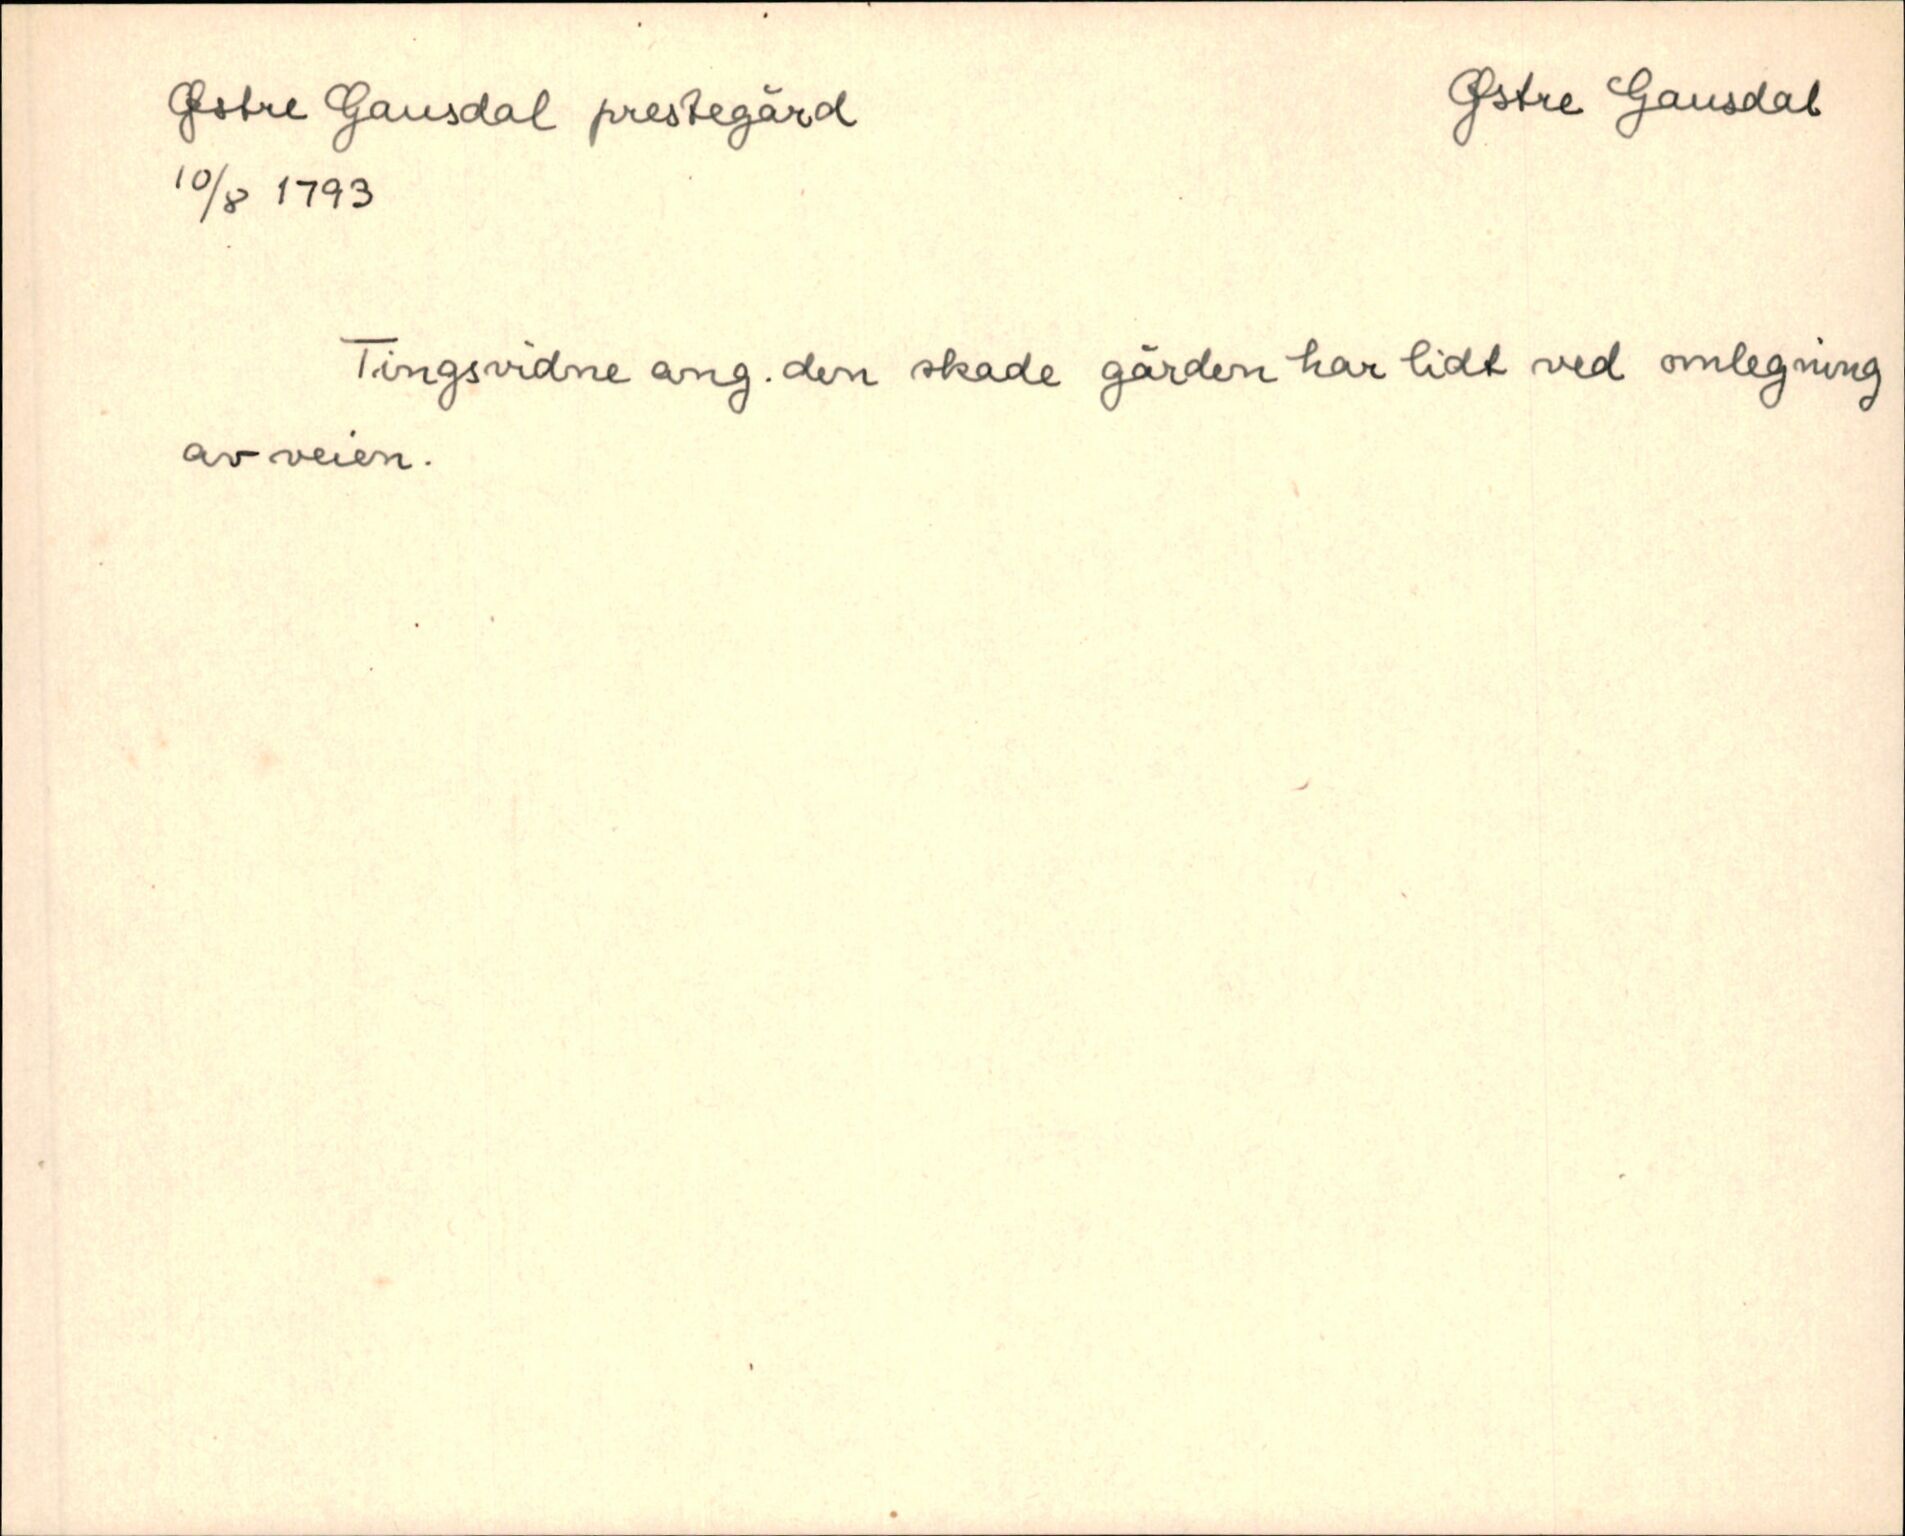 Østre Gausdal prestegård
Østre Gausdal
10/8 1793
Tingsvidne ang. den skade gården har lidt ved omlegning
av veien.